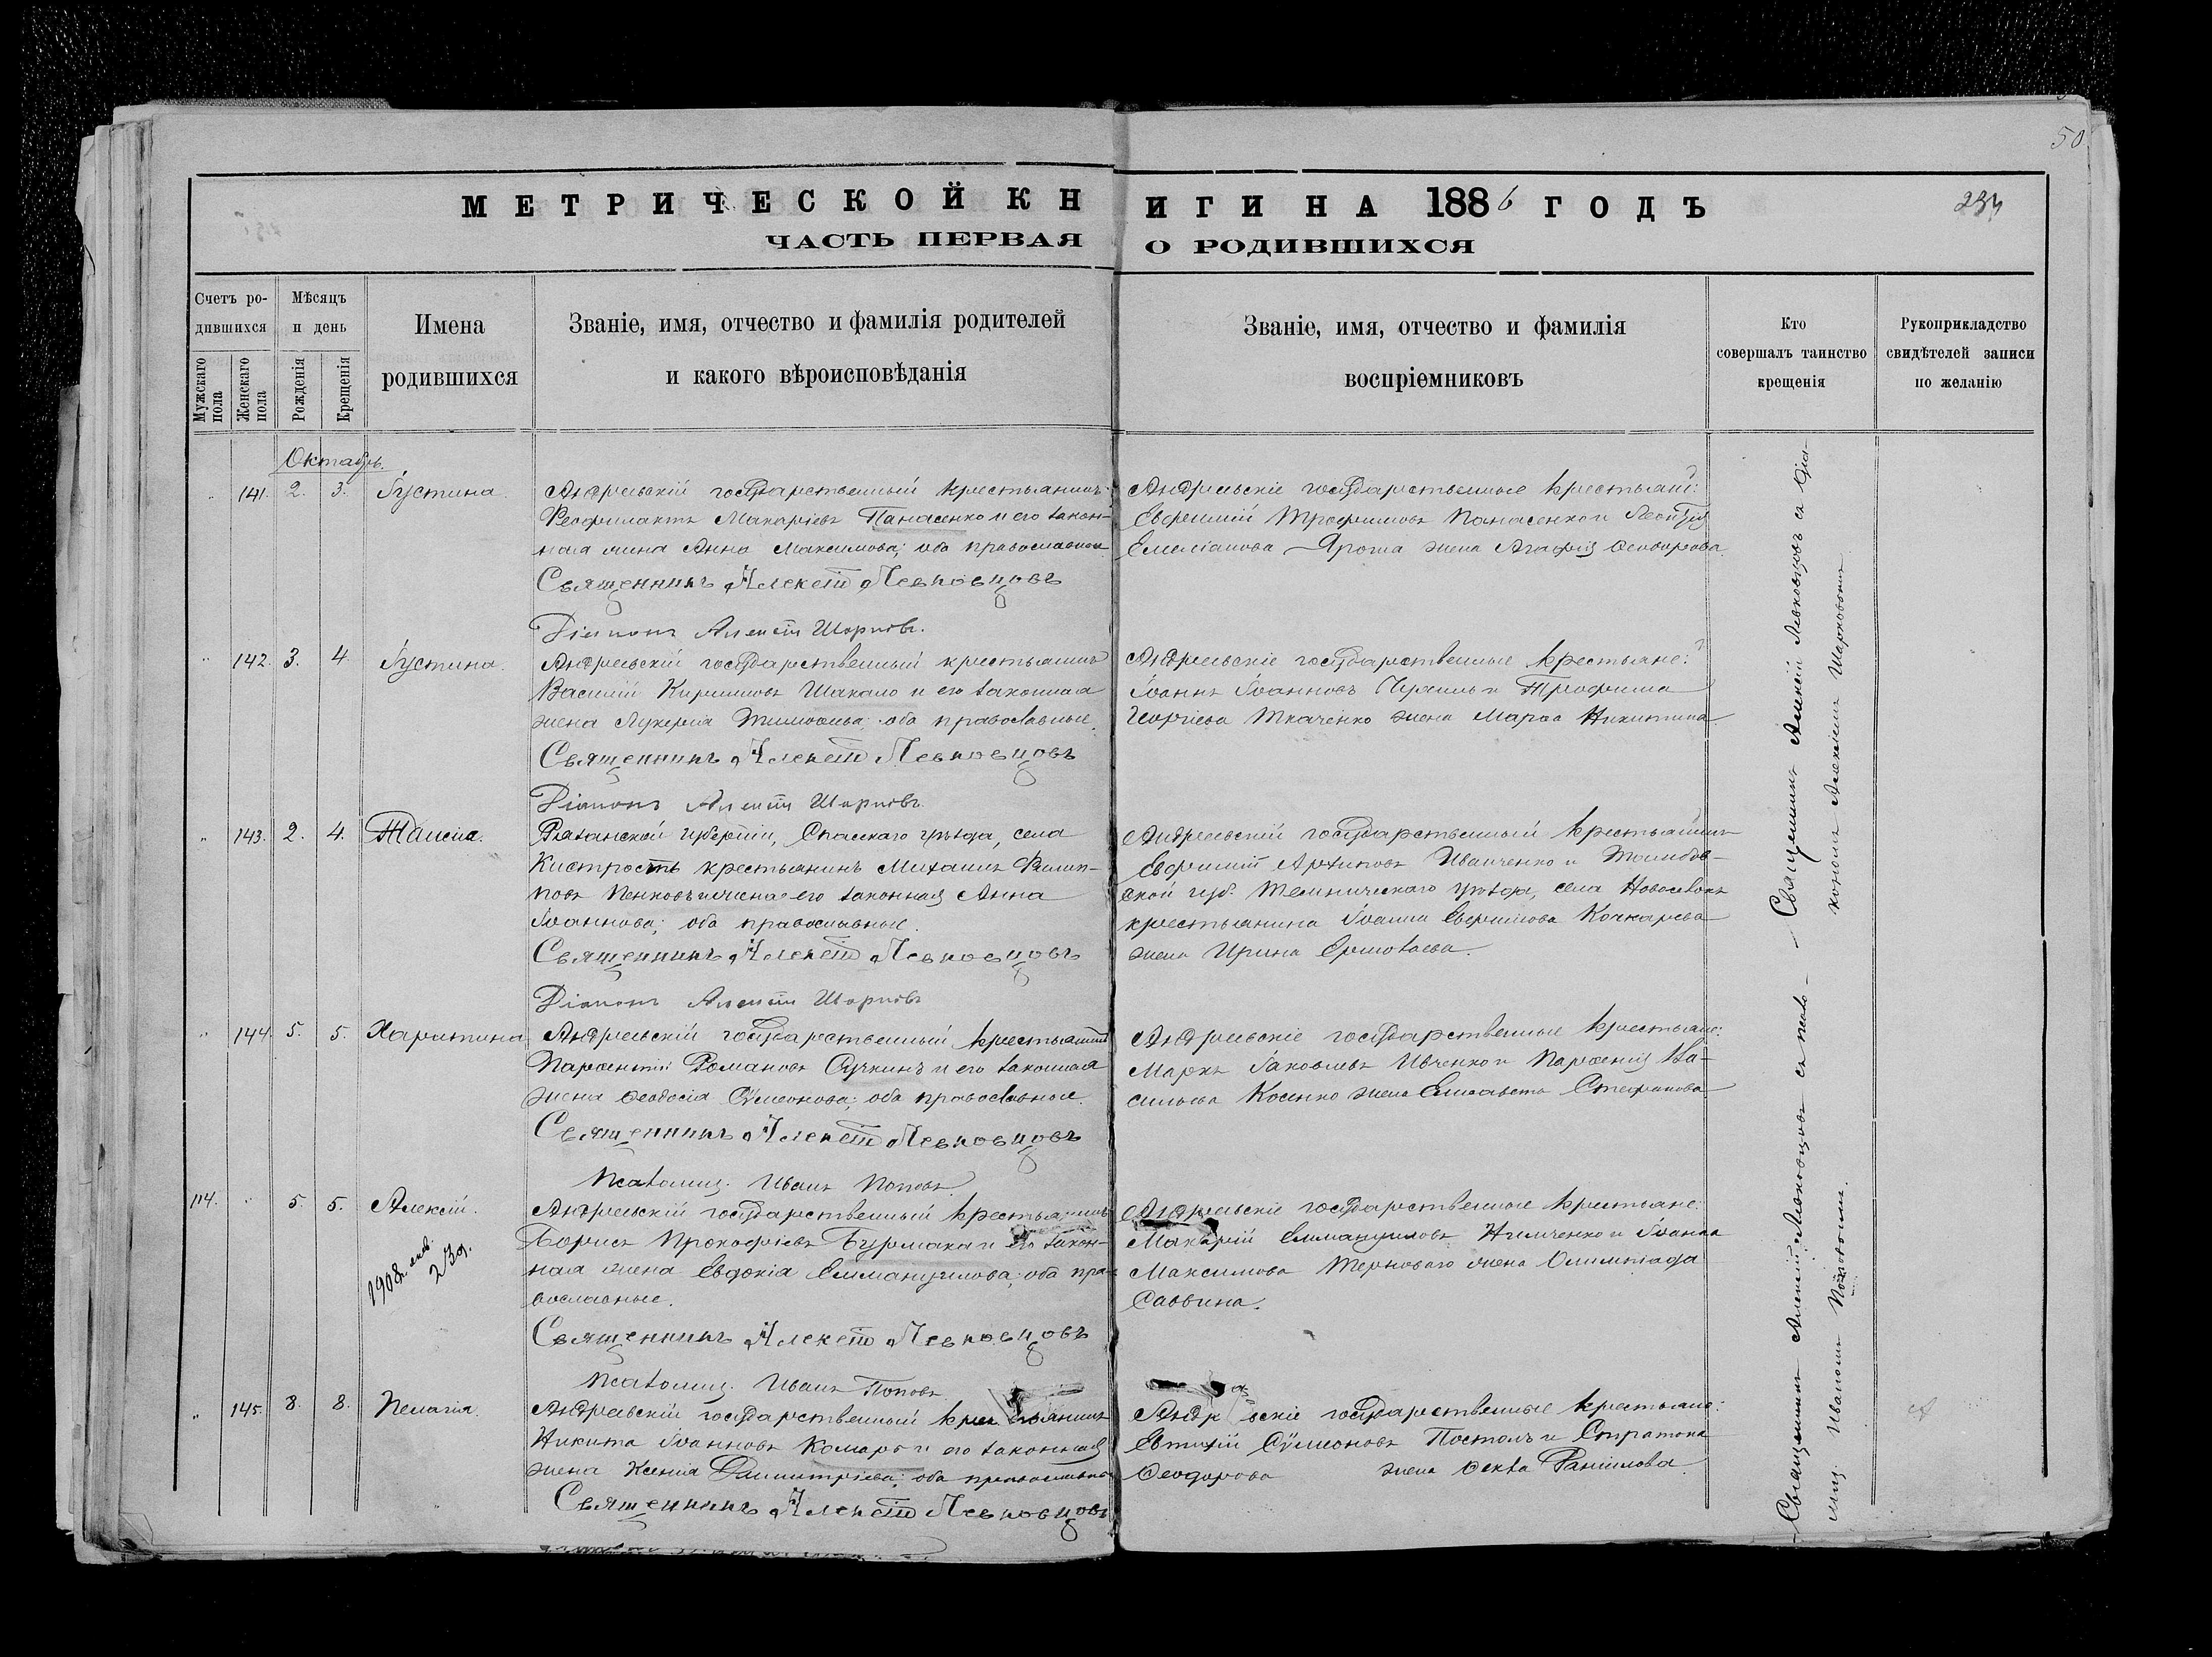 50
МЕТРИЧЕСКОЙ КНИГИ НА 1886 ГОДЪ
ЧАСТЬ ПЕРВАЯ О РОДИВШИХСЯ
Счетъ родившихся
Мужскаго пола
Женскаго пола
Мѣсяцъ и день
Рожденія
Крещенія
Имена родившихся
Званіе, имя, отчество и фамилія родителей
и какого вѣроисповѣданія
Званіе, имя, отчество и фамилія
воспріемниковъ
Кто
совершалъ таинство
крещенія
Рукоприкладство
свидѣтелей записи
по желанію
Октябрь.
141. 2. 3. Іустина.
Андреевскій государственный крестьянинъ
Феофилактъ Макаріевъ Панасенко и его закон-
ная жена Анна Максимова; оба православные
Священникъ Алексій Левковцовъ
Діаконъ Алексій
Андреевскіе государственные крестьяне:
Евфимій Трофимовъ Панасенко и
Емеліанова Яроша жена Агафія Феодорова
142. 3. 4. Іустина.
Андреевскій государственный крестьянинъ
Василій Кирилловъ Шакало и его законная
жена Лукерія; оба православные.
Священникъ Алексій Левковцовъ
Діаконъ Алексій
Андреевскіе государственные крестьяне:
Іоаннъ Іоанновъ и Трофима
Георгіева Ткаченко жена Марѳа Никитина
143. 2. 4. Таисія.
Рязанской губерніи, Спасскаго уѣзда, села
крестьянинъ Михаилъ Филип-
повъ и жена его законная Анна
Іоаннова; оба православные.
Священникъ Алексій Левковцовъ
Діаконъ Алексій
Андреевскій государственный крестьянинъ
Евфимій Архиповъ Иванченко и Тамбов-
ской губ. уѣзда, села
крестьянина Іоанна Евфимова Кочкарева
жена Ирина Ермолаева.
144. 5. 5. Харитина
Андреевскій государственный крестьянинъ
Парѳеній Романовъ Сучкинъ и его законная
жена Ѳеодосія Сѵмеонова; оба православные.
Священникъ Алексій Левковцовъ
Псаломщ. Иванъ Поповъ
Андреевскіе государственные крестьяне:
Маркъ Іаковлевъ Ивченко и Парѳенія Ва-
сильева Косенко жена Елисаветъ Стефанова
114. 5. 5. Алексій.
1908 г.
Андреевскій государственный крестьянинъ
Борисъ Прокофіевъ Бурмака и его закон-
ная жена Евдокія Еммануилова; оба пра-
вославные.
Священникъ Алексій Левковцовъ
Псаломщ. Иванъ Поповъ
Андреевскіе государственные крестьяне:
Макарій Еммануиловъ и Іоанна
Максимова Терноваго жена Олимпіада
Саввина.
145. 8. 8. Пелагія
Андреевскій государственный крестьянинъ
Никита Іоанновъ Комаръ и его законная
жена Ксенія Димитріева; оба православные
Священникъ Алексій Левковцовъ
государственные крестьяне:
Евтихій Сѵмеоновъ Постолъ и Стратона
Феодорова жена Ѳекла Даніилова.
Священникъ Алексій Левковцовъ съ діа-
кономъ Алексіемъ
Священникъ Алексій Левковцовъ съ псало-
мщ. Иваномъ Поповымъ.